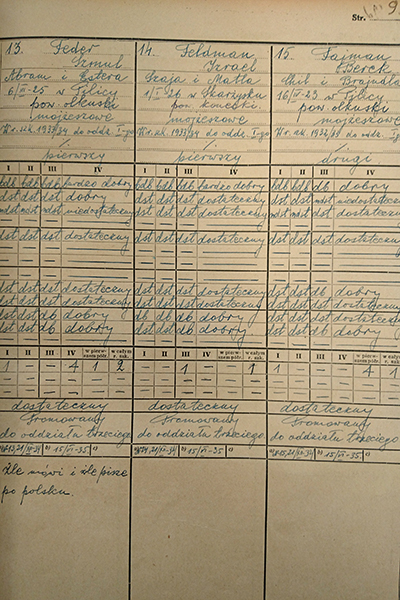 Str. 9
13. Feder
Szmul
Abram i Estera
6/II-25 w Pilicy
pow. olkuski
mojżeszowe
W r. szk. 1933/34 do oddz. I-go
pierwszy
I II III IV
bdb bdb bdb bardzo dobry
dst dst dst dobry
mdst mdst niedostateczny
dst dst dst dostateczny
dst dst dst dostateczny
dst dst dst dostateczny
dst dst dst dostateczny
dst dst db dobry
dst dst db dobry
I II III IV w pierwszem półr. w całym r. szk.
1 — — 4 1 2
dostateczny
Promowany
do oddziału trzeciego
15/VI-35
Źle mówi i źle pisze
po polsku.
14. Feldman
Izrael
Szaja i Matla
1/I-26 w Skarżysku
pow. konecki
mojżeszowe
W r. szk. 1933/34 do oddz. I-go
pierwszy
I II III IV
bdb bdb bdb bardzo dobry
dst dst dst dostateczny
dst dst dst dostateczny
dst dst dst dostateczny
dst dst dst dostateczny
dst dst dst dostateczny
dst dst dst dostateczny
dst db db dobry
dst dst db dobry
I II III IV w pierwszem półr. w całym r. szk.
— — 1 — — 1
dostateczny
Promowany
do oddziału trzeciego
15/VI-35
15. Fajman
Berek
Chil i Brajndla
16/II-23 w Pilicy
pow. olkuski
mojżeszowe
W r. szk. 1932/33 do oddz. I-go
drugi
I II III IV
bdb bdb db dobry
dst dst mdst niedostateczny
dst dst mdst dostateczny
dst dst dst dostateczny
dst dst db dobry
dst dst dst dostateczny
dst dst dst dostateczny
dst dst db dobry
dst dst db dobry
I II III IV w pierwszem półr. w całym r. szk.
1 — — 4 1
dostateczny
Promowany
do oddziału trzeciego
15/VI-35